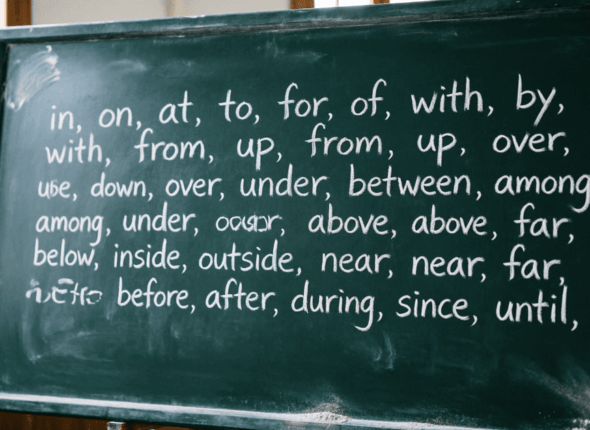 in, on, at, to, for, of, with, by,
with, from, up, from, up, over,
down, over, under, between, among
among, under, above, above, far,
below, inside, outside, near, near, far,
before, after, during, since, until,